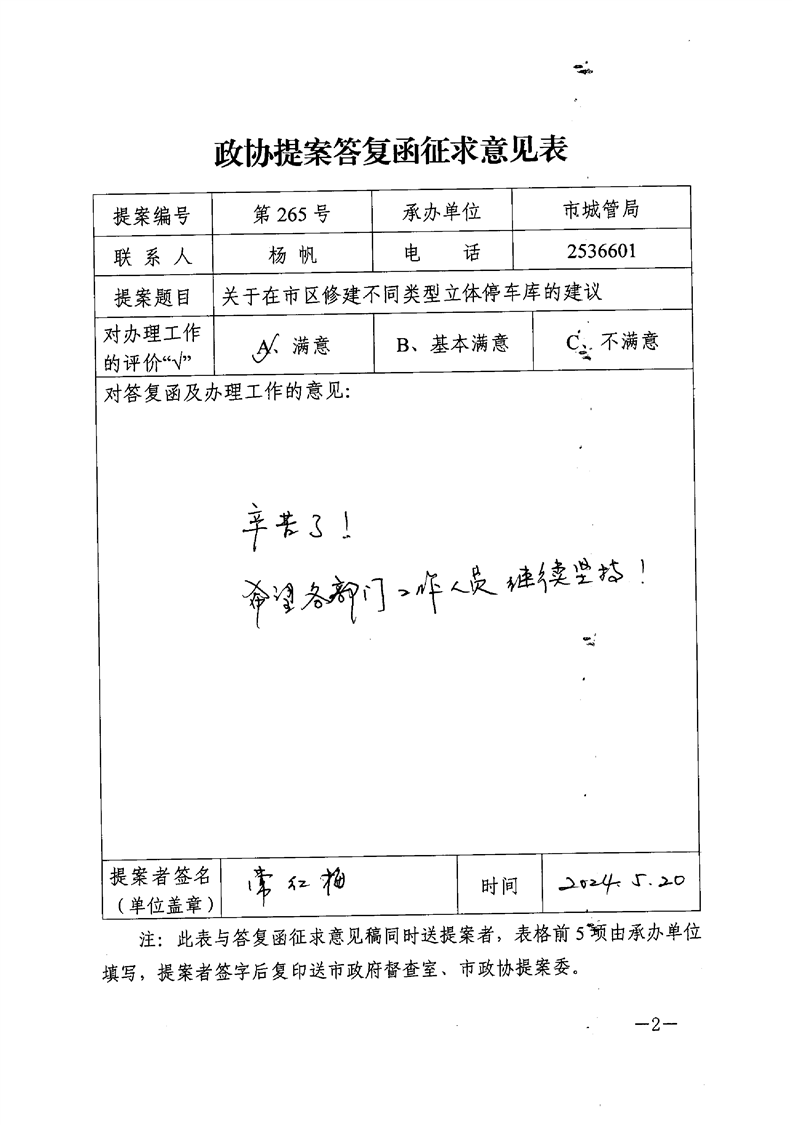 政协提案答复函征求意见表
提案编号 第 265 号 承办单位 市城管局
联系人 杨帆 电话 2536601
提案题目 关于在市区修建不同类型立体停车库的建议
对办理工作
的评价“√” A、满意 B、基本满意 C、不满意
对答复函及办理工作的意见:
辛苦了!
希望各部门工作人员继续坚持!
提案者签名
(单位盖章) 常红梅 时间 2024.5.20
注: 此表与答复函征求意见稿同时送提案者, 表格前 5 项由承办单位
填写, 提案者签字后复印送市政府督查室、市政协提案委。
—2—